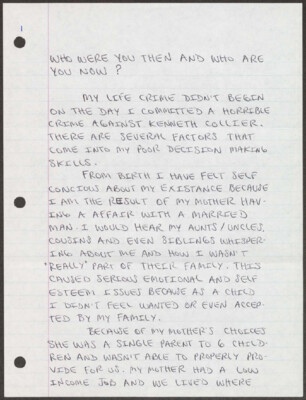 1
WHO WERE YOU THEN AND WHO ARE
YOU NOW?
MY LIFE CRIME DIDN'T BEGIN
ON THE DAY I COMMITTED A HORRIBLE
CRIME AGAINST KENNETH COLLIER.
THERE ARE SEVERAL FACTORS THAT
COME INTO MY POOR DECISION MAKING
SKILLS.
FROM BIRTH I HAVE FELT SELF
CONCIOUS ABOUT MY EXISTANCE BECAUSE
I AM THE RESULT OF MY MOTHER HAV-
ING A AFFAIR WITH A MARRIED
MAN. I WOULD HEAR MY AUNTS/UNCLES,
COUSINS AND EVEN SIBLINGS WHISPER-
ING ABOUT ME AND HOW I WASN'T
"REALLY" PART OF THEIR FAMILY. THIS
CAUSED SERIOUS EMOTIONAL AND SELF
ESTEEM ISSUES BECAUSE AS A CHILD
I DIDN'T FEEL WANTED OR EVEN ACCEP-
TED BY MY FAMILY.
BECAUSE OF MY MOTHER'S CHOICES
SHE WAS A SINGLE PARENT TO 6 CHILD-
REN AND WASN'T ABLE TO PROPERLY PRO-
VIDE FOR US. MY MOTHER HAD A LOW
INCOME JOB AND WE LIVED WHERE